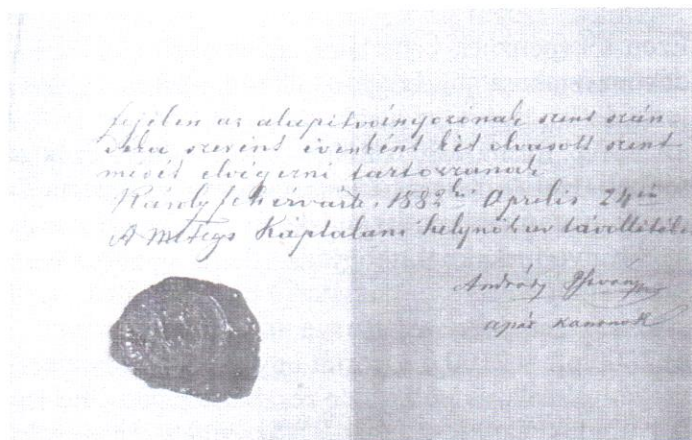 fejében az alapitványozónak szent szán
déka szerint évenként két olvasott szent
misét elvégezni tartozzanak
Károlyfehérvárt, 1882 Aprilis 24én
A Káptalani helynök ur távollétéb
András
apát kanonok